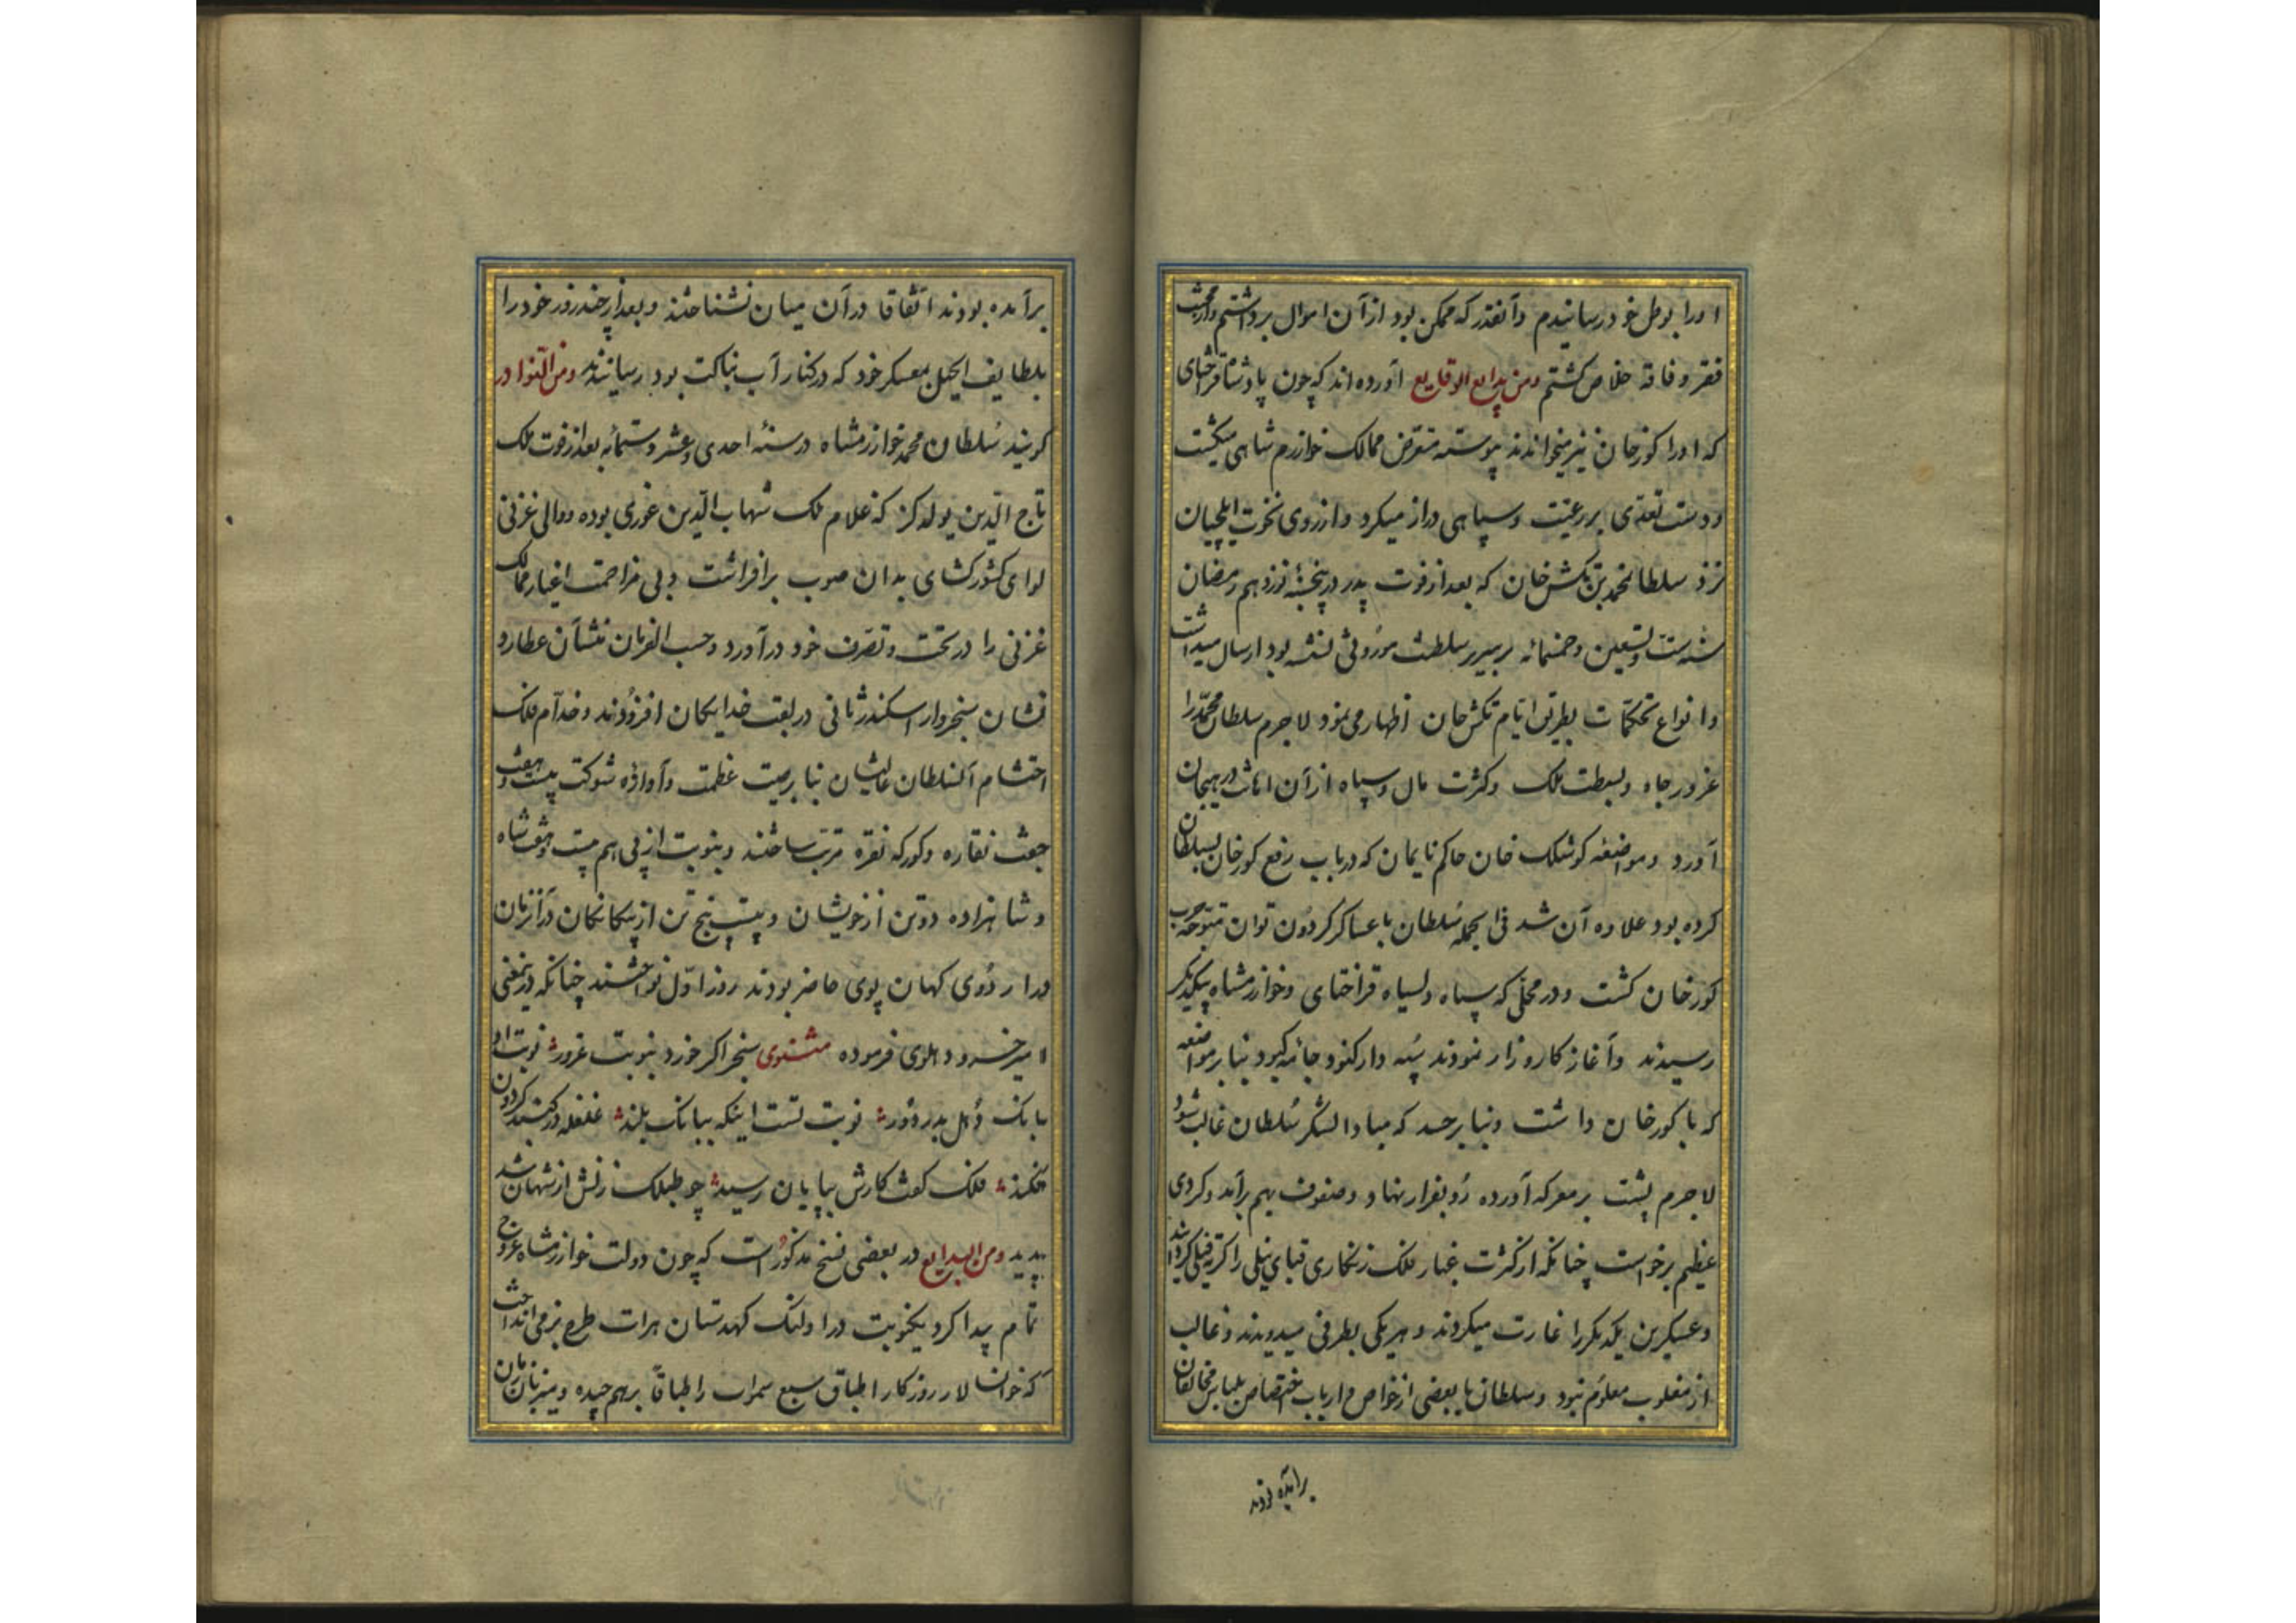 او را بوطن خود رسانیدم و آنقدر که ممکن بود از آن اموال برداشتم و از محنت
فقر و فاقه خلاص کشتم ومن بدایع الوقایع آورده اند که چون پادشاه قراختای
که او را کورخان نیز میخواندند پیوسته متعرض ممالک خوارزم شاهی میکشت
و دست تعدی بر رعیت و سپاهی دراز میکرد و از روی نخوت ایلچیان
نزد سلطان محمد بن تکش خان که بعد از فوت پدر در پنجشنبه نوزدهم رمضان
سنه ست و تسعین و خمسمائه بر سریر سلطنت موروثی نشسته بود ارسال میداشت
و انواع تحکمات بطریق ایام تکش خان اظهار می نمود لاجرم سلطان محمد را
غرور جاه و بسطت ملک و کثرت مال و سپاه از آن اناث در هیجان
آورد و مواضعه کوشلک خان حاکم نایمان که در باب رفع کورخان بسلطان
کرده بود علاوه آن شد فی الجمله سلطان با عساکر کردون توان متوجه حرب
کورخان کشت و در محلی که سپاه ولسیاه قراختای و خوارزمشاه بیکدیکر
رسیدند و آغاز کارزار نمودند سپه دار کنود جامه کبود بنا بر مواضعه
که با کورخان داشت و بنا بر حسد که مبادا لشکر سلطان غالب شود
لاجرم پشت بر معرکه آورده رو بفرار نهاد و صفوف بهم برآمد و کردی
عظیم برخواست چنانکه از کثرت غبار فلک زنکاری قبای نیلی را اکتر فیلی کردانید
و عسکرین یکدیکر را غارت میکردند و هر یکی بطرفی میدویدند و غالب
از مغلوب معلوم نبود و سلطان با بعضی از خواص و ارباب اختصاص بلباس مخالفان
برآمده بودند
برآمده بودند اتفاقا در آن میان نشناختند و بعد از چند روز خود را
بلطایف الحیل بمعسکر خود که در کنار آب بناکت بود رسانیدند ومن النوادر
کویند سلطان محمد خوارزمشاه در سنه احدی و عشر و ستمائه بعد از فوت ملک
تاج الدین یولدکز که غلام ملک شهاب الدین غوری بوده و والی غزنی
لوای کشورکشای بدان صوب برافراشت و بی مزاحمت اغیار ممالک
غزنی را در تحت و تصرف خود درآورد و حسب الفرمان منشآن عطارد
نشان سنجر وار اسکندر ثانی در لقب خدایکان افزودند و خدام فلک
احتشام آنسلطان عالیشان بنا بر صیت عظمت و آوازه شوکت بیست و هفت
جفت نقاره و کورکه نقره مرتب ساختند و بنوبت از پی هم بیست و هفت شاه
و شاهزاده دو تن از خویشان و بیست پنج تن از بیکانکان در آنزمان
در اردوی کهان پوی حاضر بودند روز اول نواختند چنانکه درینمعنی
امیر خسرو دهلوی فرموده مثنوی سنجر اکر خورد بنوبت غرور نوبت او
بانک دهل بد ز دور نوبت تست اینکه ببانک بلند غلغله در کنبد کردون
فکند فلک کفت کارش بپایان رسید چو طبلک زنش از شهان شد
پدید ومن البدایع در بعضی نسخ مذکور است که چون دولت خوارزمشاه عروج
تمام پیدا کرد یکنوبت در اولنک کهدستان هرات طرح بزمی انداخت
که خوانسالار روزکار اطباق سبع سموات را طباقا برهم چیده و میزبان زمان